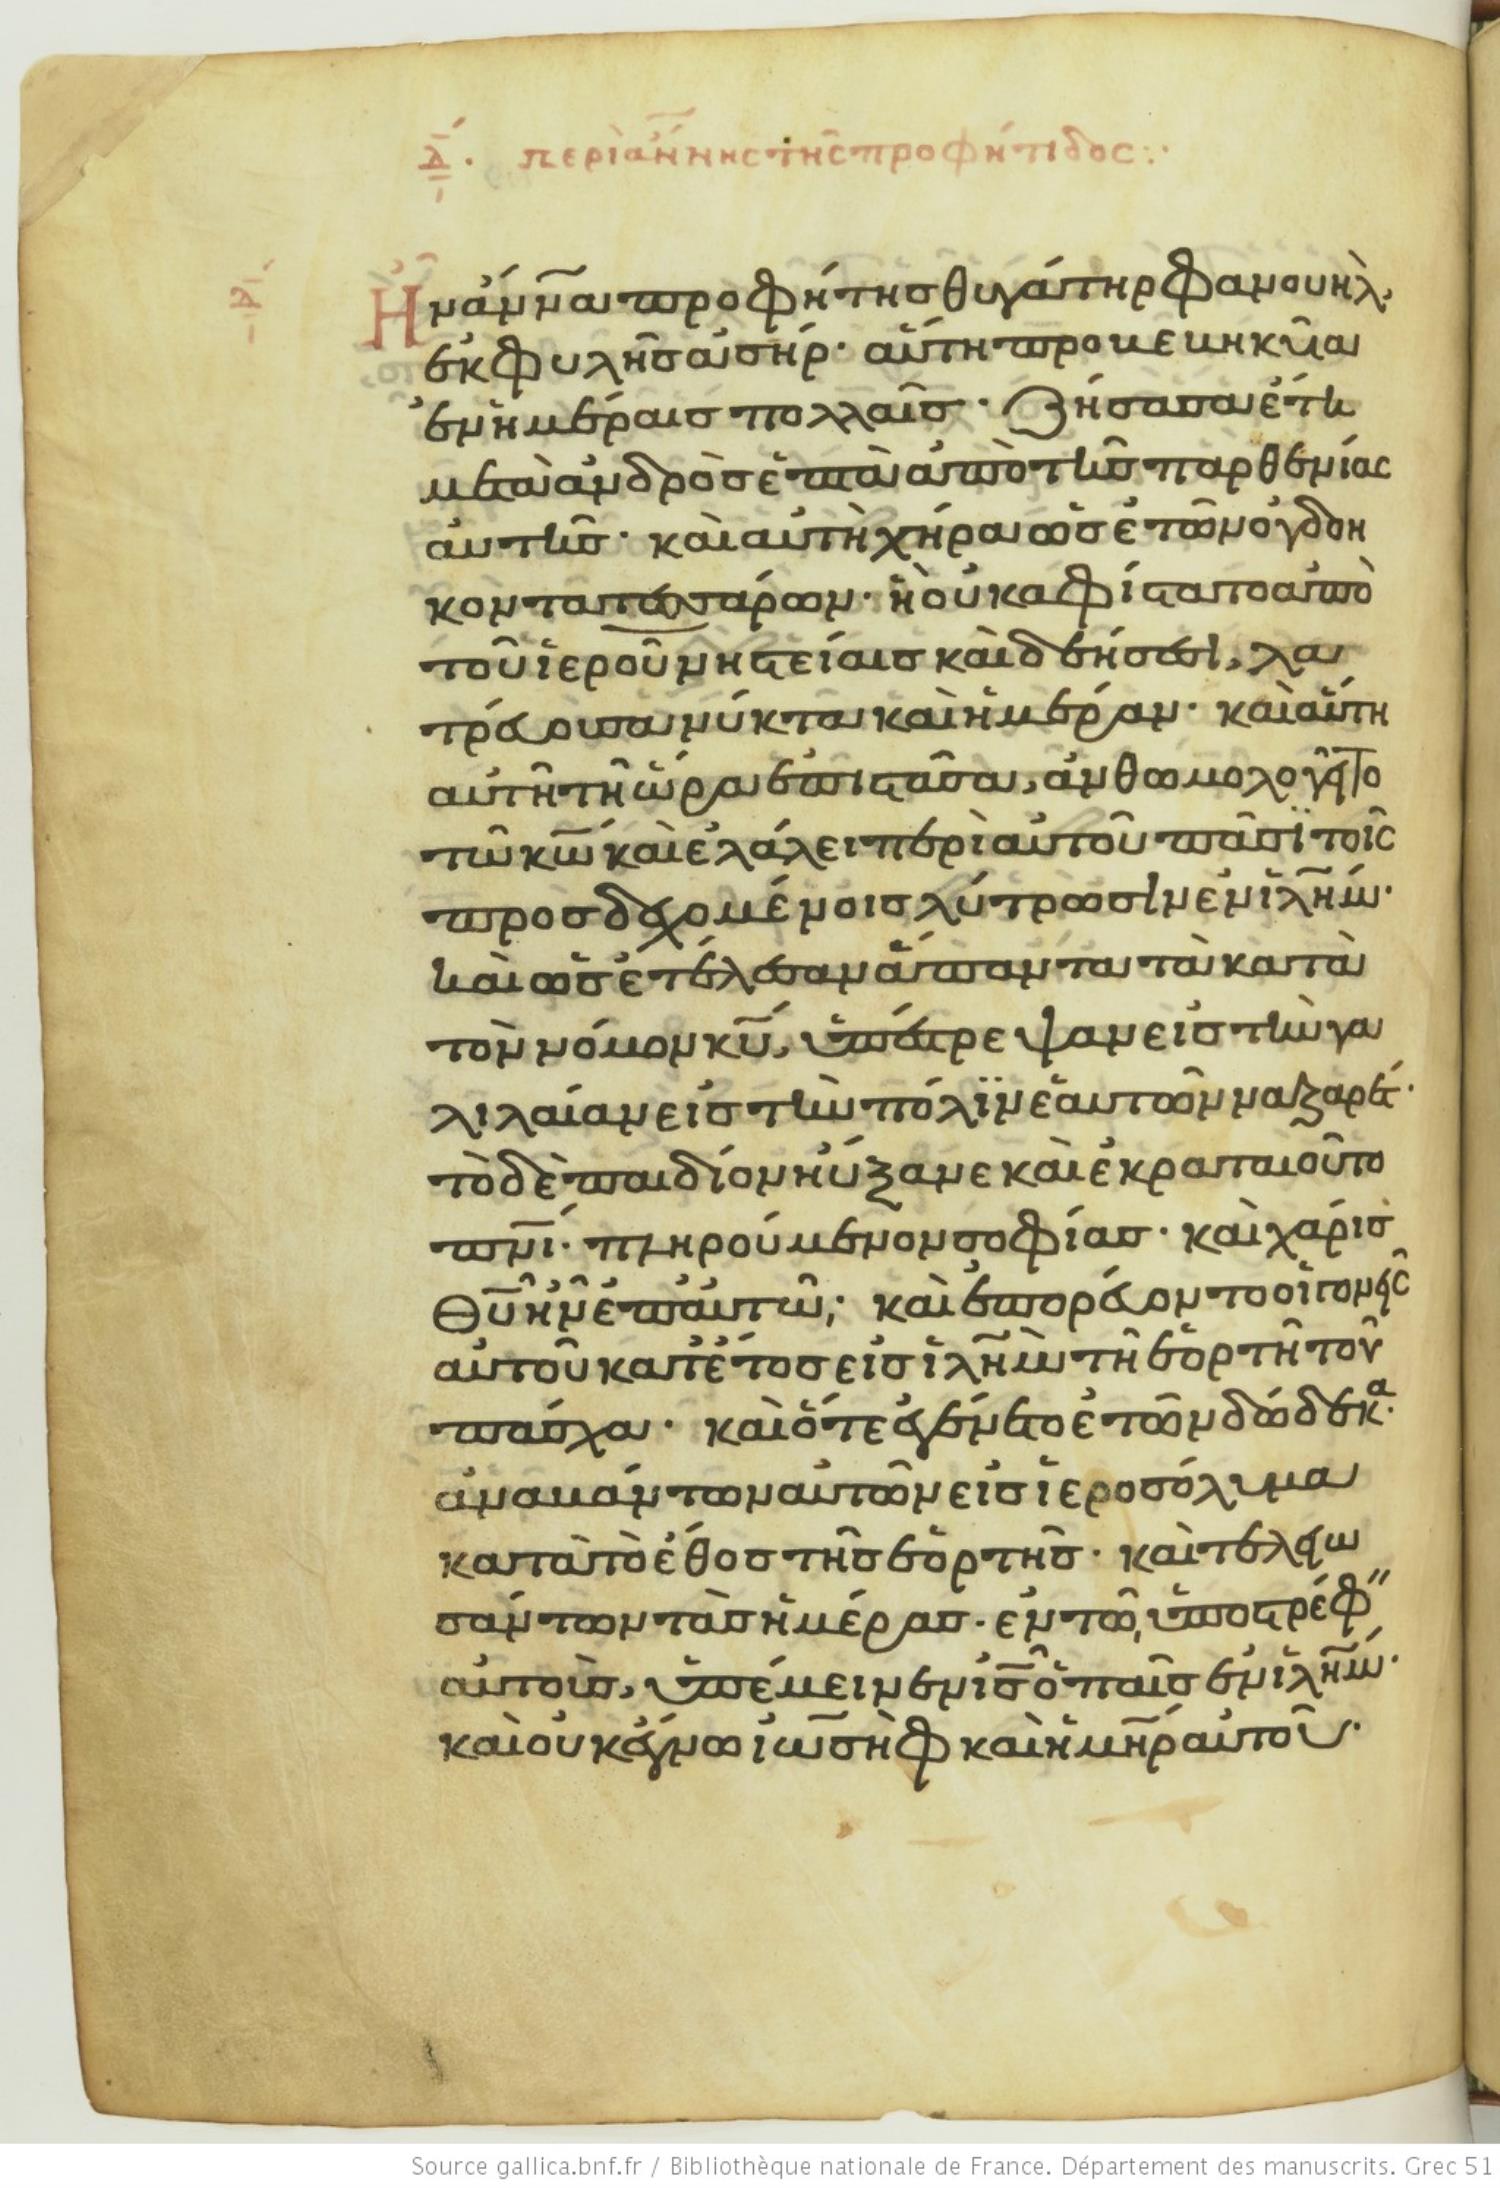 δ. περὶ ἄννης τῆς προφήτιδος:·
δ
Ἦν ἄννα προφήτησ θυγάτηρ φανουὴλ,
ἐκ φυλῆσ ἀσήρ· αὕτη προβεβηκυῖα
ἐν ἡμέραισ πολλαῖσ· ζήσασα ἔτη
μετὰ ἀνδρὸσ ἑπτὰ ἀπὸ τῆσ παρθενίας
αὐτῆσ· καὶ αὐτὴ χήρα ὡσ ἐτῶν ὀγδοη
κοντατεσσάρων· ἣ οὐκ αφίστατο ἀπὸ
τοῦ ἱεροῦ νηστείαισ καὶ δεήσεσι, λα
τρεύουσα νύκτα καὶ ἡμέραν· καὶ αὕτη
αὐτῆ τῆ ὥρα ἐπιστᾶσα, ἀνθωμολογεῖτο
τῶ κω̅ καὶ ἐλάλει περὶ αὐτοῦ πᾶσϊ τοῖς
προσδεχομένοισ λύτρωσιν ἐν ἰλη̅μ·
καὶ ὡσ ἐτέλεσαν ἅπαντα τὰ κατὰ
τὸν νόμον κυ̅, ὑπέστρεψαν εἰσ τὴν γα
λιλαίαν εἰσ τὴν πόλϊν ἑαυτῶν ναζαρέτ·
τὸ δὲ παιδίον ηὔξανε καὶ ἐκραταιοῦτο
πνι̅· πληρούμενον σοφίασ· καὶ χάρισ
θυ̅ ἦν ἐπ αὐτῶ; καὶ ἐπορεύοντο οἱ γονεῖς
αὐτοῦ κατ ἔτοσ εἰσ ἰλη̅μ τῆ ἑορτῆ τοῦ
πάσχα· καὶ ὅτε ἐγένετο ἐτῶν δώδεκα·
ἀναβάντων αὐτῶν εἰσ ἱεροσόλυμα
κατὰ τὸ ἔθοσ τῆσ ἑορτῆσ· καὶ τελειω
σάντων τὰσ ἡμέρασ· ἐν τῶ ὑποστρέφ"
αὐτοὺσ, ὑπέμεινεν ισ̅ ὁ παῖσ ἐν ἰλη̅μ·
καὶ οὐκ ἔγνω ἰωσὴφ καὶ ἡ μη̅ρ αὐτοῦ·
Source gallica.bnf.fr / Bibliothèque nationale de France. Département des manuscrits. Grec 51